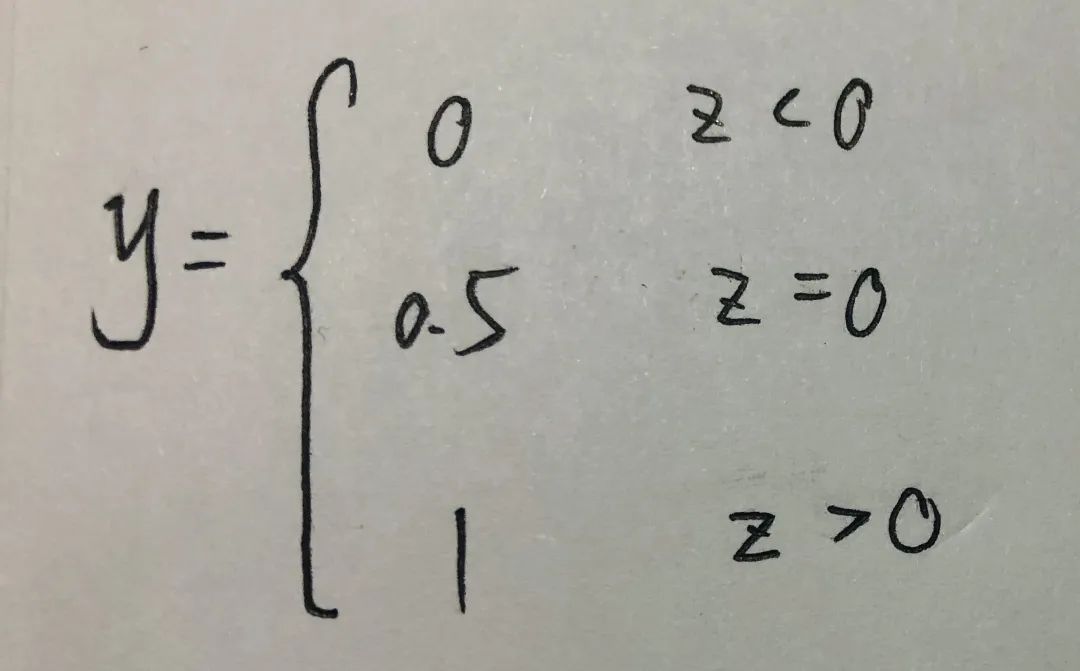 y = { 0 z < 0
0.5 z = 0
1 z > 0